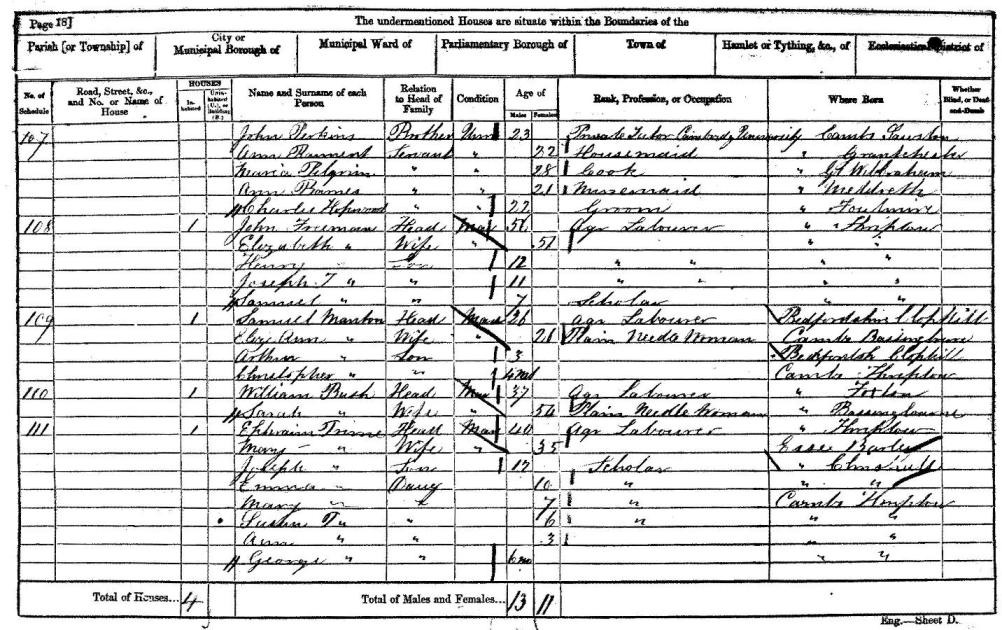 Page 18]
The undermentioned Houses are situate within the Boundaries of the
Parish [or Township] of City or Municipal Borough of Municipal Ward of Parliamentary Borough of Town of Hamlet or Tything, &c., of Ecclesiastical District of
No. of Schedule Road, Street, &c., and No. or Name of House HOUSES Inhabited Uninhabited (U.), or Building (B.) Name and Surname of each Person Relation to Head of Family Condition Age of Males Females Rank, Profession, or Occupation Where Born Whether Blind, or Deaf-and-Dumb
107 John Perkins Brother Unm 23 Private Tutor University Cambs
Ann Servant " 22 Housemaid " Grantchester
Maria Pilgrim " " 28 Cook " Gt Wilbraham
Ann " " 21 Nursemaid " Meldreth
Charles Hopwood " " 22 Groom "
108 1 John Freeman Head Mar 51 Agr Labourer " Thriplow
Elizabeth " Wife " 51 " "
Henry Son 12 " " " "
Joseph T " " 11 " " " "
Samuel " " 7 Scholar " "
109 1 Samuel Manton Head Mar 26 Agr Labourer Bedfordshire Clophill
Eliz Ann " Wife " 21 Plain Needle Woman Cambs Bassingbourne
Arthur " Son 3 Clophill
Christopher " " Cambs Thriplow
110 1 William Rush Head Mar 37 Agr Labourer "
Sarah " Wife " 54 Plain Needle Woman " Bassingbourne
111 1 Ephraim Head Mar 40 Agr Labourer " Thriplow
Mary " Wife " 35
Joseph " Son 12 Scholar "
Emma " 10 " " "
Mary " " 7 " Cambs Thriplow
Susan " 6 " " "
Ann " " 3 " "
George " " 6 mo " "
Total of Houses... 4 Total of Males and Females... 13 11
Eng.—Sheet D.